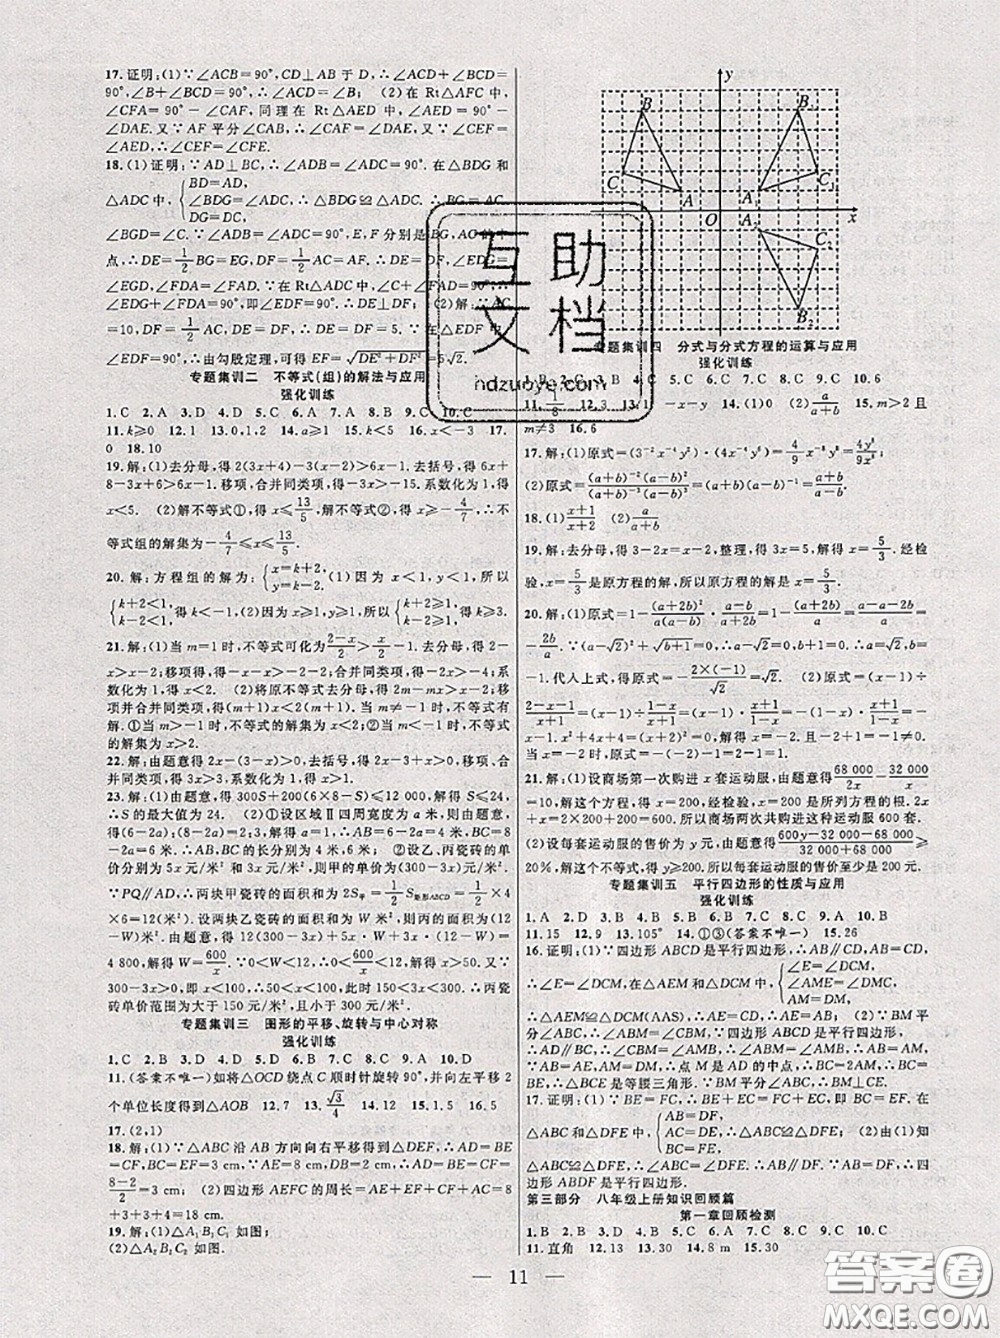 17.证明:(1)∵∠ACB=90°,CD⊥AB于D,∴∠ACD+∠BCD=90°,
∠B+∠BCD=90°,∴∠ACD=∠B; (2)在Rt△AFC中,
∠CFA=90°-∠CAF,同理在Rt△AED中,∠AED=90°-
∠DAE.又∵AF平分∠CAB,∴∠CAF=∠DAE,又∵∠AED=
∠CEF,∴∠CFE=∠CEF.
18.(1)证明:∵AD⊥BC,∴∠ADB=∠ADC=90°.在△BDG和
△ADC中,{BD=AD, ∠BDG=∠ADC, DG=DC, ∴△BDG≌△ADC.∴BG=AC,
∠BGD=∠C.∵∠ADB=∠ADC=90°,E,F分别是BG,AC的
点,∴DE=1/2BG=EG,DF=1/2AC=AF.∴DE=DF,∠EDG=
∠EGD,∠FDA=∠FAD.∵在Rt△ADC中,∠C+∠FAD=90°,
∴∠EGD+∠FDA=90°,即∠EDF=90°.∴DE⊥DF; (2)解:∵AC
=10,DF=1/2AC,∴DF=5.∴DE=DF=5.∵在△EDF中
∠EDF=90°,∴由勾股定理,可得EF=√(DE²+DF²)=5√2.
专题集训二 不等式(组)的解法与应用
强化训练
1.C 2.A 3.D 4.D 5.A 6.D 7.B 8.B 9.C 10.C
11.k≥0 12.1 13.0,1,2 14.a≥1 15.k<2 16.x<-3 17.
0 18.10
19.解:(1)去分母,得2(3x+4)-3(x-2)>6x-1.去括号,得6x+
8-3x+6>6x-1.移项,合并同类项,得-3x>-15.系数化为1,得
x<5. (2)解不等式①,得x≤13/5,解不等式②,得x≥-4/7,∴不
等式组的解集为-4/7≤x≤13/5.
20.解:方程组的解为:{x=k+2, y=k-2. (1)因为x<1,y<1,所以
{k+2<1, k-2<1,得k<-1;(2)因为x>1,y>1,所以{k+2>1, k-2>1,得k>3.
21.解:(1)当m=1时,不等式可变为(2-x)/2>x/2-1.去分母,得
2-x>x-2;移项得,得-x-x>-2-2;合并同类项,得-2x>-4;系
数化为1,得x<2. (2)将原不等式去分母,得2m-mx>x-2;移
项并合并同类项,得(m+1)x<2(m+1).当m≠-1时,不等式有
解.①当m>-1时,不等式的解集为x<2;②当m<-1时,不等式
的解集为x>2.
22.解:由题意得2x-(3-x)>0,去括号,得2x-3+x>0,移项、合
并同类项,得3x>3,系数化为1,得x>1.
23.解:(1)由题意,得300S+200(6×8-S)≤12000,解得S≤24,
∴S的最大值为24. (2)①设区域Ⅱ四周宽度为a米,则由题意得
(6-2a):(8-2a)=2:3,解得a=1,∴AB=6-2a=4,BC=8-
2a=6米.∴AB,BC的长度分别为4米,6米; ②设乙、丙瓷砖的单
价分别为5x元/米²和3x元/米²,则甲的单价为(300-3x)元/米².
∵PQ//AD,∴两块甲瓷砖的面积和为2S甲=1/2S矩形ABCD=1/2×
4×6=12(米²).设两块乙瓷砖的面积和为W米²,则丙的面积为
(12-W)米².由题意,得12(300-3x)+5x·W+3x·(12-W)=
4800,解得W=600/x.∵0<W<12,∴0<600/x<12,∴x>50.又∵
300-3x>0,∴x<100,∴50<x<100,∴150<3x<300.∴丙瓷
砖单价范围为大于150元/米²,且小于300元/米².
专题集训三 图形的平移、旋转与中心对称
强化训练
1.C 2.B 3.D 4.D 5.C 6.D 7.C 8.C 9.A 10.D
11.(答案不唯一)如将△OCD绕点C顺时针旋转90°,并向左平移2
个单位长度得到△AOB 12.7 13.√3/4 14.12 15.1.5 16.5
17.(2,1)
18.解:(1)∵△ABC沿AB方向向右平移得到△DEF,∴AD=BE
=CF,BC=EF=3 cm,∵AE=8 cm,DB=2 cm,∴AD=BE=CF=
(8-2)/2=3 cm; (2)四边形AEFC的周长=AE+EF+CF+AC=8
+3+3+4=18 cm.
19.解:(1)△A₁B₁C₁如图:
(2)△A₂B₂C₂如图.
y
B
B₁
C
C₁
A
A₁
O
x
A₂
C₂
B₂
专题集训四 分式与分式方程的运算与应用
强化训练
1.B 2.C 3.B 4.C 5.A 6.D 7.C 8.C 9.C 10.6
11.1/8 12.3 13.(1)-x-y 14.(1)0 (2)a/(a+b) 15.m>2且
m≠3 16.6
17.解:(1)原式=(3⁻²x⁻⁴y²)·(4x⁻⁴y⁶)=4/9x⁻⁸y⁸=4y⁸/9x⁸;
(2)原式=(a+b)⁻²(a-b)²/(a+b)⁻³(a-b)³=(a+b)/(a-b).
18.(1)(x+1)/x (2)a/(a+b)
19.解:去分母,得3-2x=x-2,整理,得3x=5,解得x=5/3.经检
验,x=5/3是原方程的解,所以原方程的解是x=5/3.
20.解:(1)原式=1-(a+2b)²/a(a-b)·(a-b)/(a+2b)=1-(a+2b)/a=(a-a-2b)/a=
-2b/a.∵(a-√2)²+√(b+1)=0,∴a-√2=0,b+1=0,∴a=√2,b=
-1.代入上式,得原式=-2×(-1)/√2=√2. (2)原式=
(2-x-1)/(x+1)÷(x-1)=(x-1)÷(1-x)/(x+1)=(x-1)·(x+1)/(1-x)=-
x-1.x²+4x+4=(x+2)²=0,∴x+2=0,∴x=-2.
当x=-2时,原式=-(-2)-1=2-1=1.
21.解:(1)设商场第一次购进x套运动服,由题意得68 000/2x-32 000/x
=10,解这个方程,得x=200,经检验,x=200是所列方程的根.2x+
x=2×200+200=600.所以商场两次共购进这种运动服600套;
(2)设每套运动服的售价为y元,由题意得(600y-32 000-68 000)/(32 000+68 000)≥
20%,解这个不等式,得y≥200.所以每套运动服的售价至少是200元.
专题集训五 平行四边形的性质与应用
强化训练
1.A 2.D 3.D 4.B 5.B 6.A 7.C 8.C 9.A 10.B
11.15 12.9 13.105° 14.①③(答案不唯一) 15.26
16.证明:(1)∵四边形ABCD是平行四边形,∴AB//CD,∴∠E=
∠DCM,在△AEM和△DCM中,{∠E=∠DCM, ∠AME=∠DMC, AM=DM,
∴△AEM≌△DCM(AAS),∴AE=CD,∴AE=AB; (2)∵BM平
分∠ABC,∴∠ABM=∠CBM,∵四边形ABCD是平行四边形,
∴BC//AD,∴∠CBM=∠AMB,∴∠ABM=∠AMB,∴AB=AM,
∵AB=AE,∴AM=AE,∵点M是AD的中点,∴AD=2AM,
∴BC=BE,∴△BCE是等腰三角形.∵BM平分∠ABC,∴BM⊥CE.
17.证明:(1)∵BE=FC,∴BE+EC=FC+EC,∴BC=FE,在
△ABC和△DFE中,{AB=DF, AC=DE, BC=FE,∴△ABC≌△DFE; (2)由(1)知
△ABC≌△DFE,∴∠ABC=∠DFE,∴AB//DF,∵AB=DF,∴四
边形ABDF是平行四边形.
第三部分 八年级上册知识回顾篇
第一章回顾检测
1.B 2.D 3.C 4.B 5.A 6.D 7.C 8.C 9.C 10.D
11.直角 12.13 13.30 14.8 m 15.30
11
互助
文档
hdzuoye.com
答案圈
MXQE.COM